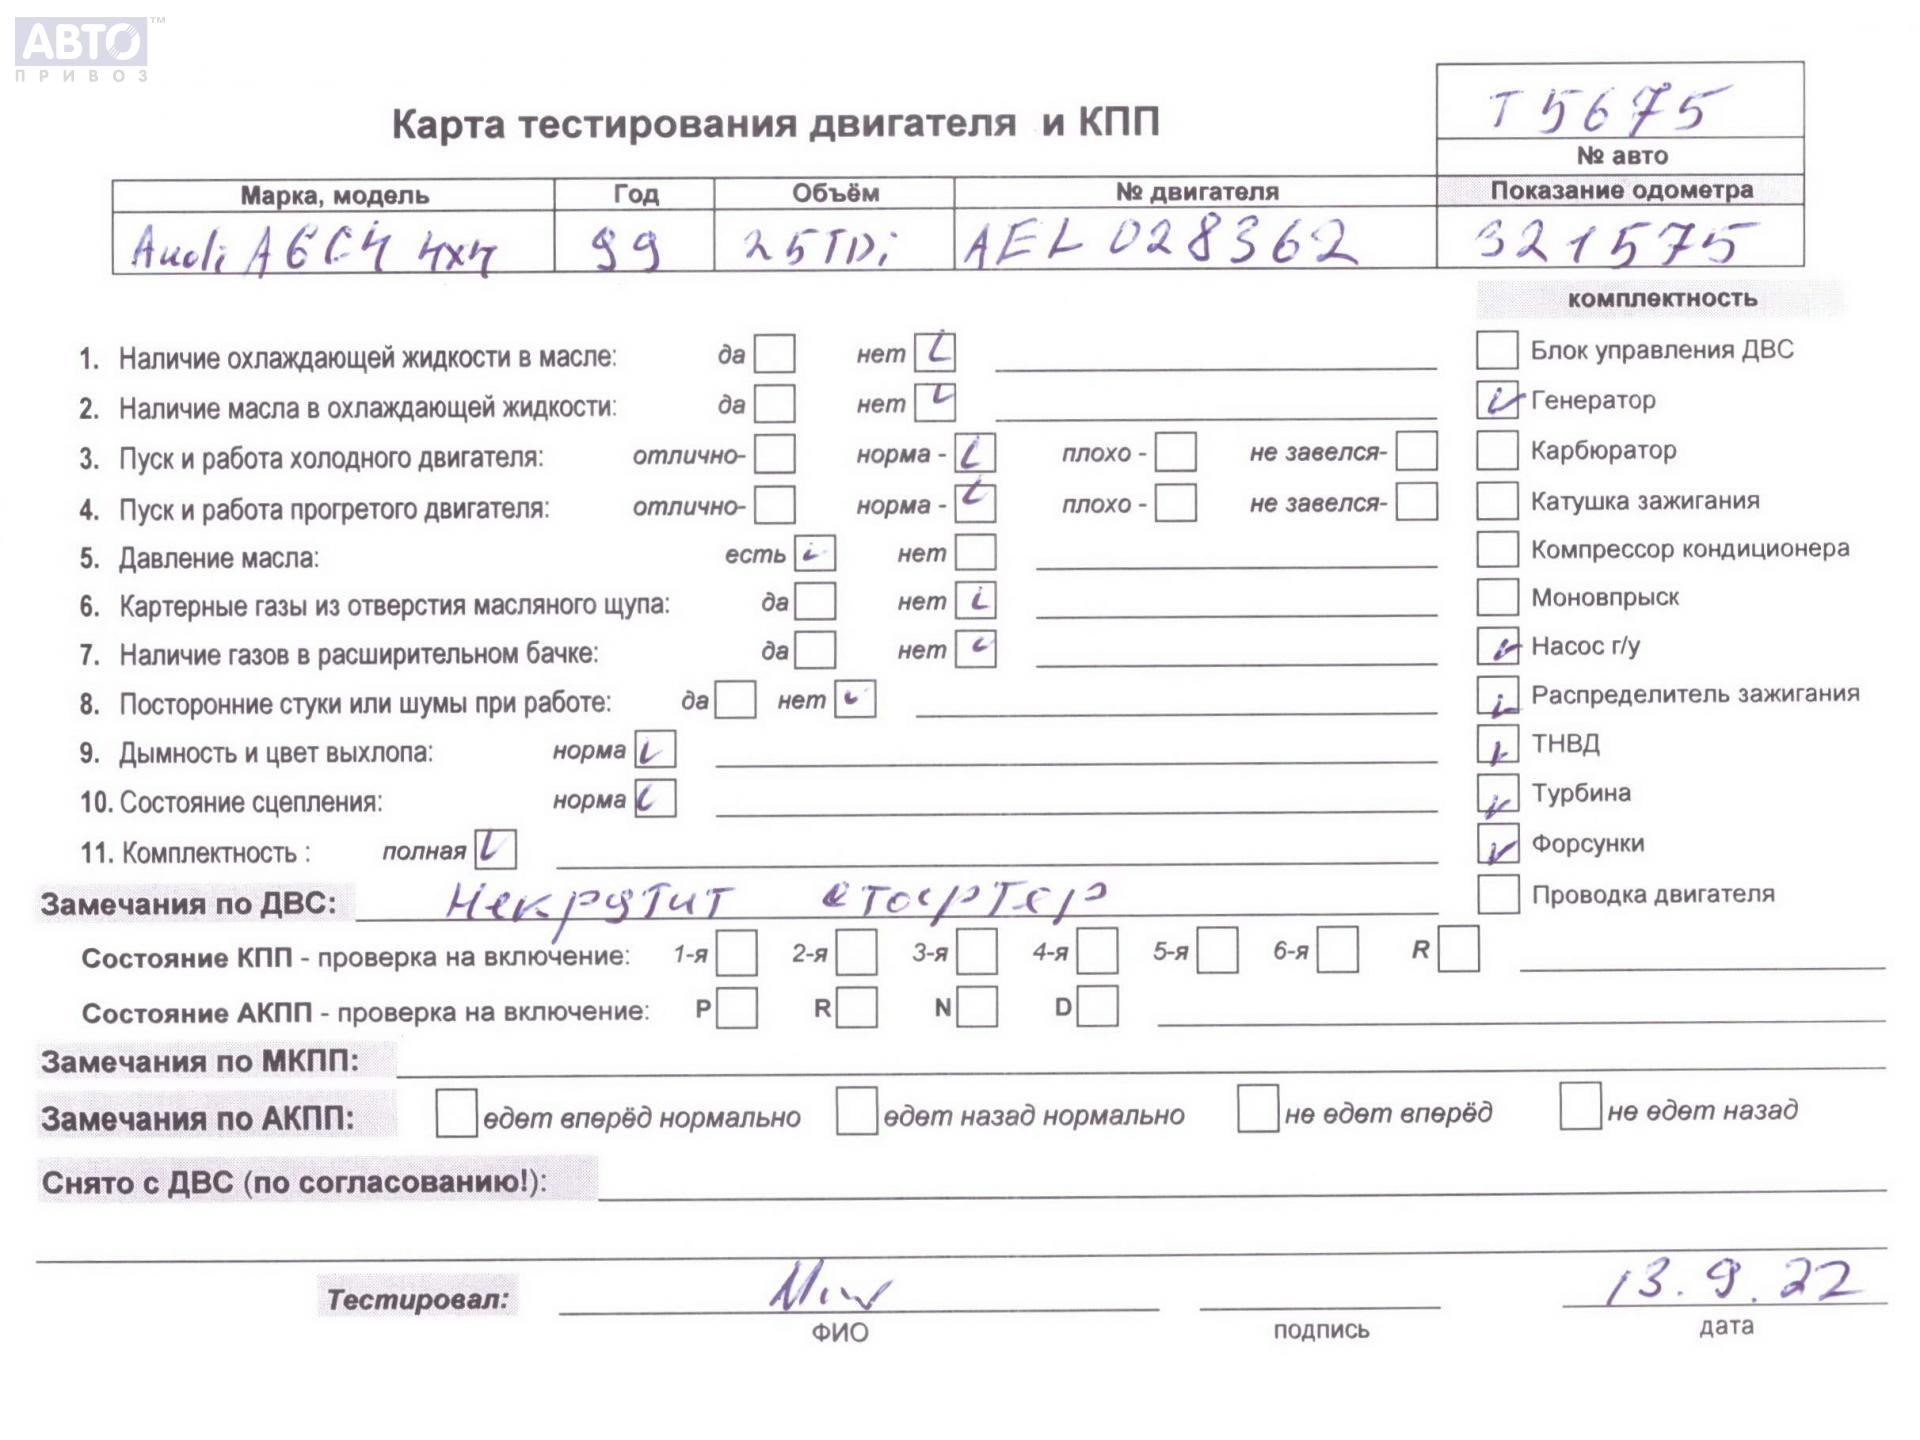 АВТО™
ПРИВОЗ
Т5675
Карта тестирования двигателя и КПП
№ авто
Марка, модель Год Объём № двигателя Показание одометра
Audi A6C4 4x4 99 25TDi AEL 028362 321575
комплектность
1. Наличие охлаждающей жидкости в масле: да нет
Блок управления ДВС
2. Наличие масла в охлаждающей жидкости: да нет
Генератор
3. Пуск и работа холодного двигателя: отлично- норма - плохо - не завелся-
Карбюратор
4. Пуск и работа прогретого двигателя: отлично- норма - плохо - не завелся-
Катушка зажигания
5. Давление масла: есть нет
Компрессор кондиционера
6. Картерные газы из отверстия масляного щупа: да нет
Моновпрыск
7. Наличие газов в расширительном бачке: да нет
Насос г/у
8. Посторонние стуки или шумы при работе: да нет
Распределитель зажигания
9. Дымность и цвет выхлопа: норма
ТНВД
10. Состояние сцепления: норма
Турбина
11. Комплектность : полная
Форсунки
Замечания по ДВС: Некрутит стартер
Проводка двигателя
Состояние КПП - проверка на включение: 1-я 2-я 3-я 4-я 5-я 6-я R
Состояние АКПП - проверка на включение: P R N D
Замечания по МКПП:
Замечания по АКПП: едет вперёд нормально едет назад нормально не едет вперёд не едет назад
Снято с ДВС (по согласованию!):
Тестировал: 13.9.22
ФИО подпись дата